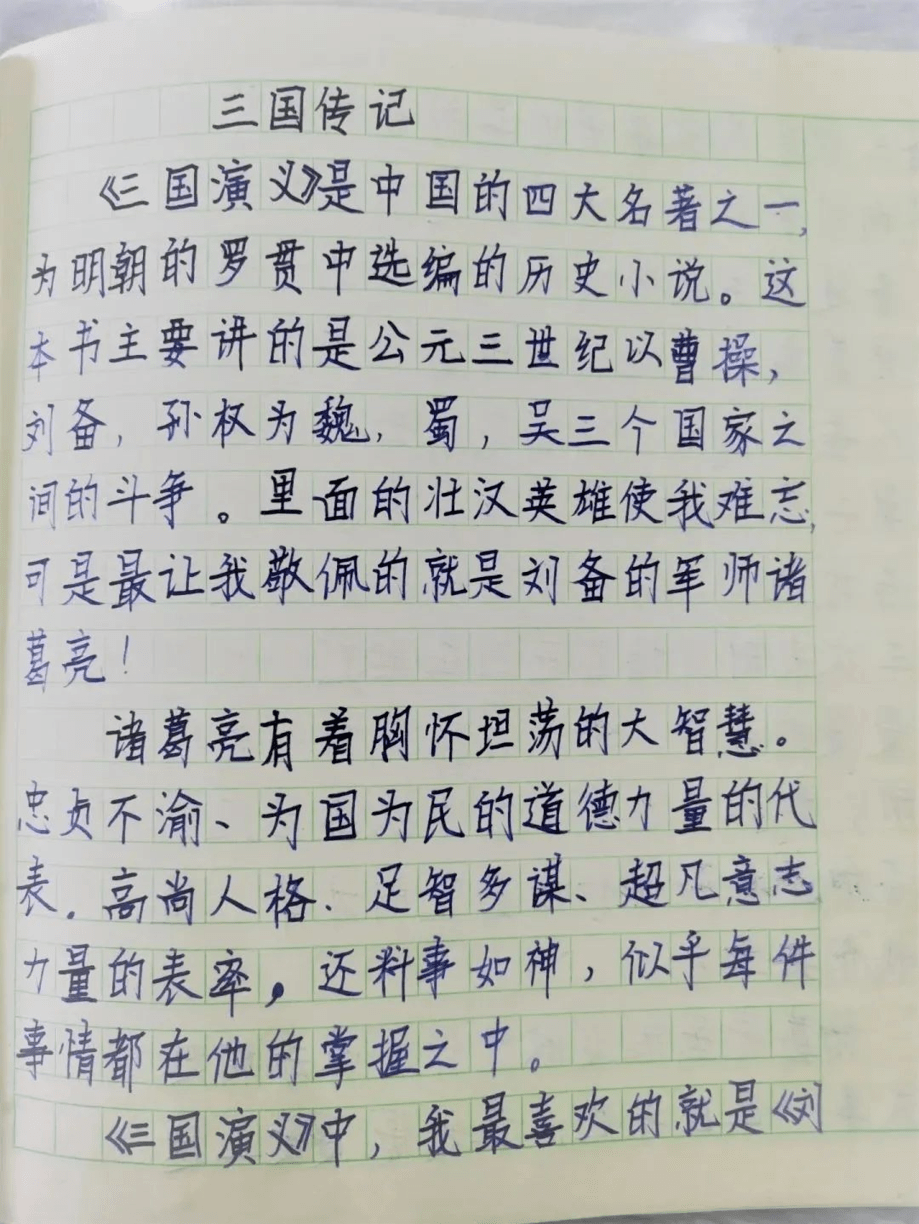 三国传记
《三国演义》是中国的四大名著之一,
为明朝的罗贯中选编的历史小说。这
本书主要讲的是公元三世纪以曹操,
刘备,孙权为魏,蜀,吴三个国家之
间的斗争。里面的壮汉英雄使我难忘,
可是最让我敬佩的就是刘备的军师诸
葛亮!
诸葛亮有着胸怀坦荡的大智慧。
忠贞不渝、为国为民的道德力量的代
表.高尚人格、足智多谋、超凡意志
力量的表率,还料事如神,似乎每件
事情都在他的掌握之中。
《三国演义》中,我最喜欢的就是《刘